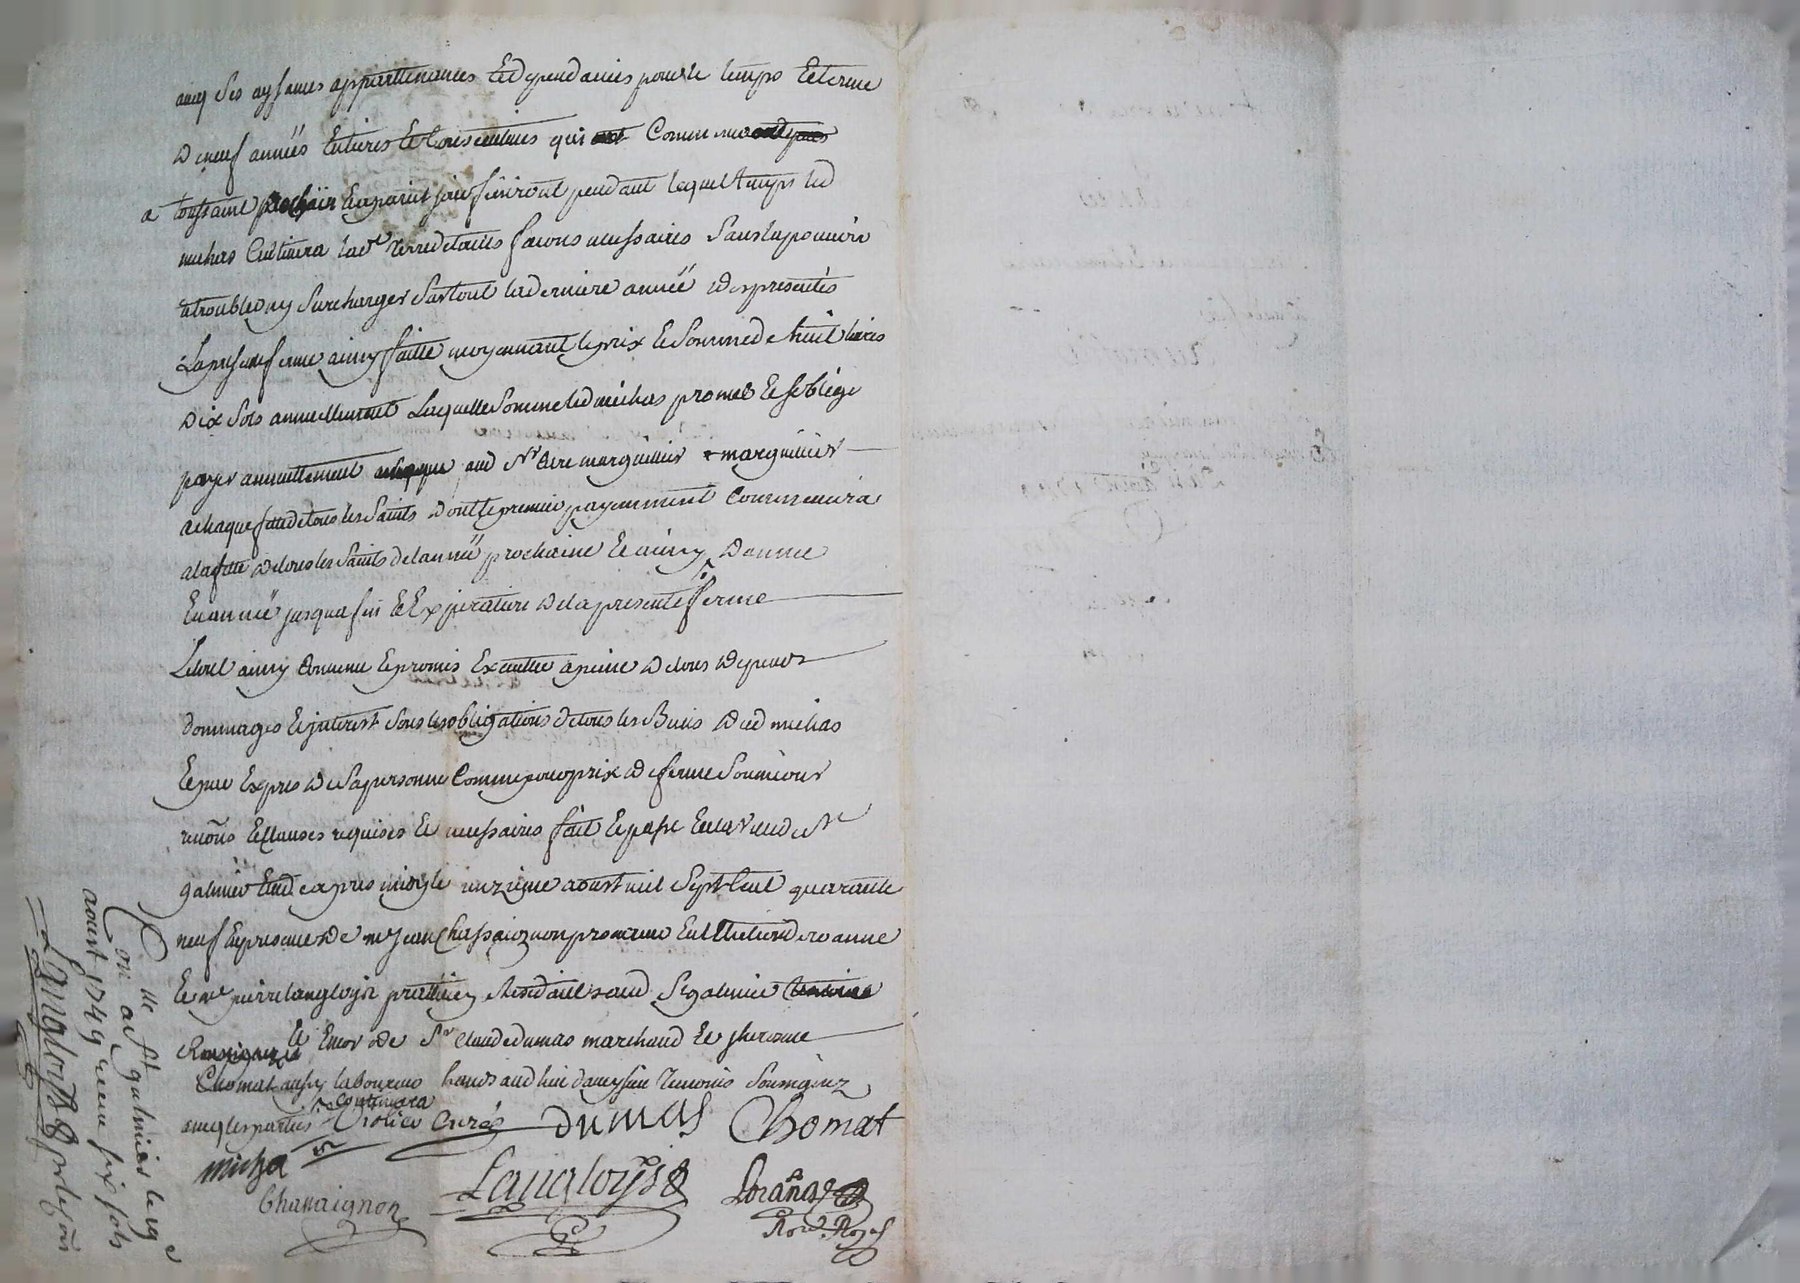 avecq ses aysances appartenances Et dependances pour le temps Et terme
De neuf années Entieres Et Consecutives qui Commenceront
a toussaint prochain Et a pariel jour finiront pendant lequel temps led
michas Cultivera lad.e Terre de toutes facons necessaires Sans la pouvoir
troubler ny Surcharger Surtout la derniere année des presentes
La presente ferme ainsy faitte moyennant le prix Et Somme de huit livres
Dix Sols annuellement Laquelle Somme led michas promet Et s'oblige
payer annuellement aud Sr Curé marguillier + marguillier
a chaque fette de tous les Saints Dont le premier payemment Commencera
a la fette De tous les Saints de l'année prochaine Et ainsy D'année
En année jusqu'a fin Et Expirature De la presente ferme
Le tout ainsy Convenu Et promis Executter a peine De tous Depens
dommages Et jnterest Sous les obligations De tous les Biens Dud michas
Et par Expres De Sa personne Comme pour prix De ferme Soumissions
renons Et Clauses requises Et necessaires fait Et passé En la Ville de St
galmier Etude apres midy le unzieme aoust mil Sept Cent quarante
neuf En presence De me jean Chassaignon procureur En l'Election de roanne
Et me pierre langloys praticien Residants aud St galmier
Et Encor De Sr Claude dumas marchand Et jherosme
Chomat aussy laboureur habs aud lieu d'aveyzieu Temoins Soussignez
avecq les parties Trolier Curé DUMAS Chomat
contenura
micha
Chassaignon Langloys Lorange
Not. Royal
Con.llé a St galmier le 19e
aoust 1749 receu six sols
Langloys